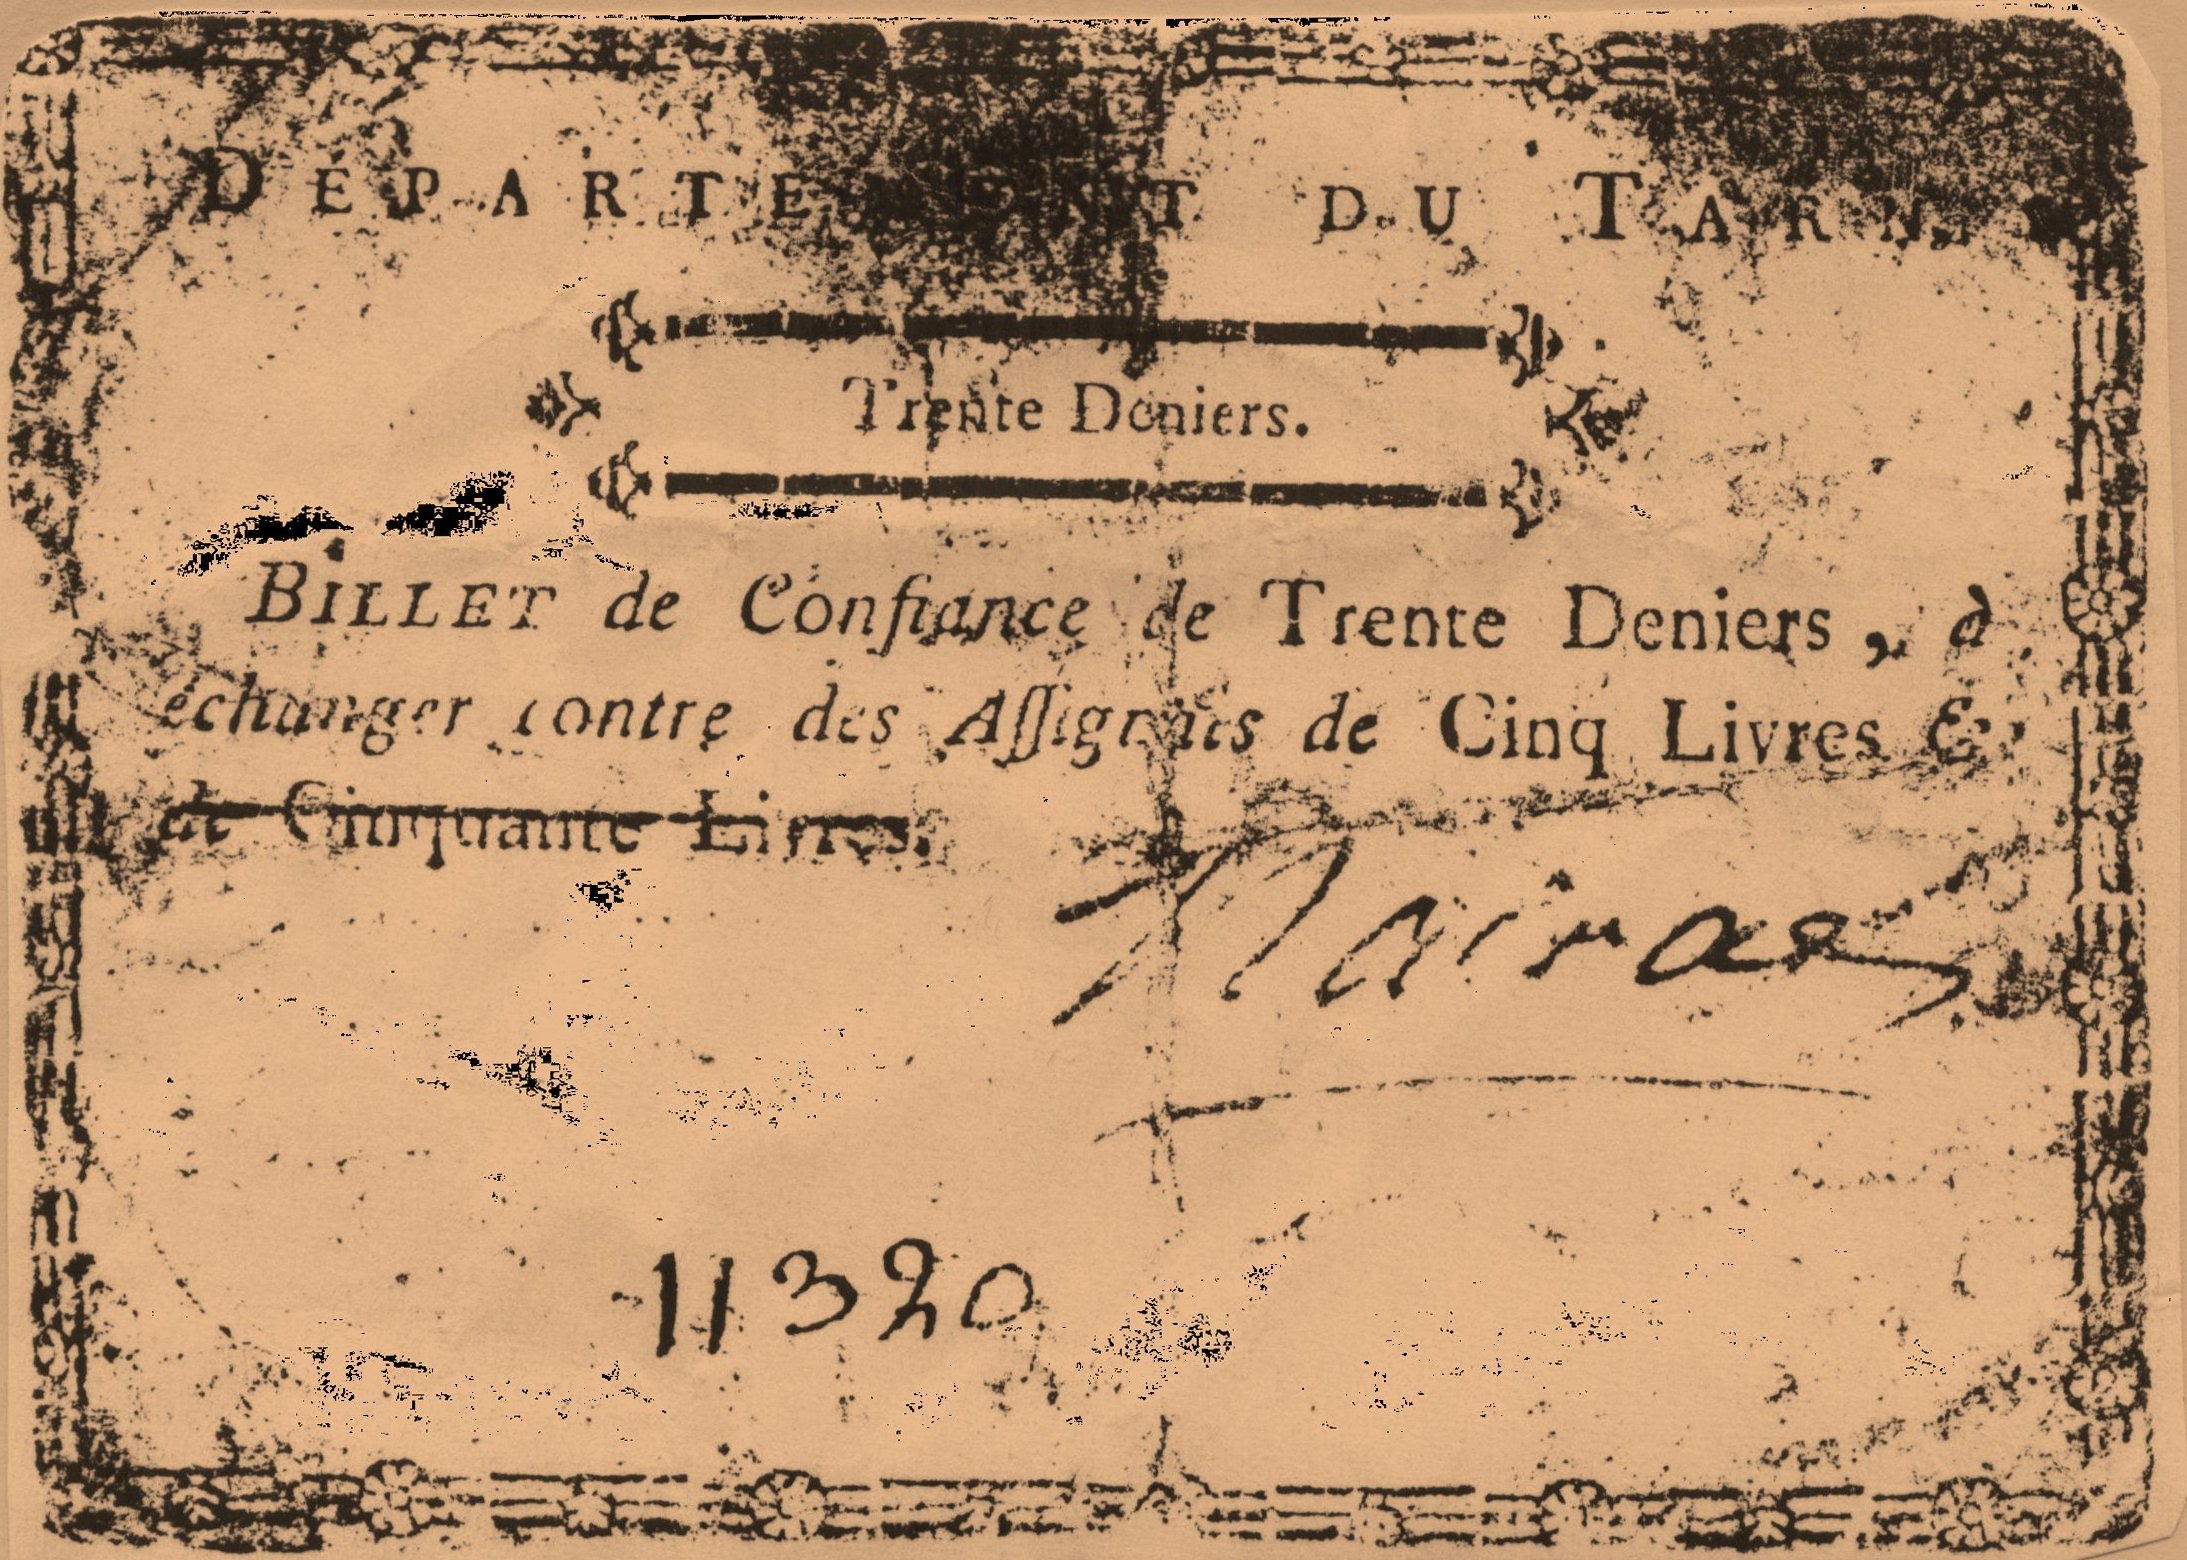 DÉPARTEMENT DU TARN.
Trente Deniers.
BILLET de Confiance de Trente Deniers, à
échanger contre des Aſſignats de Cinq Livres &
de Cinquante Livres.
11320